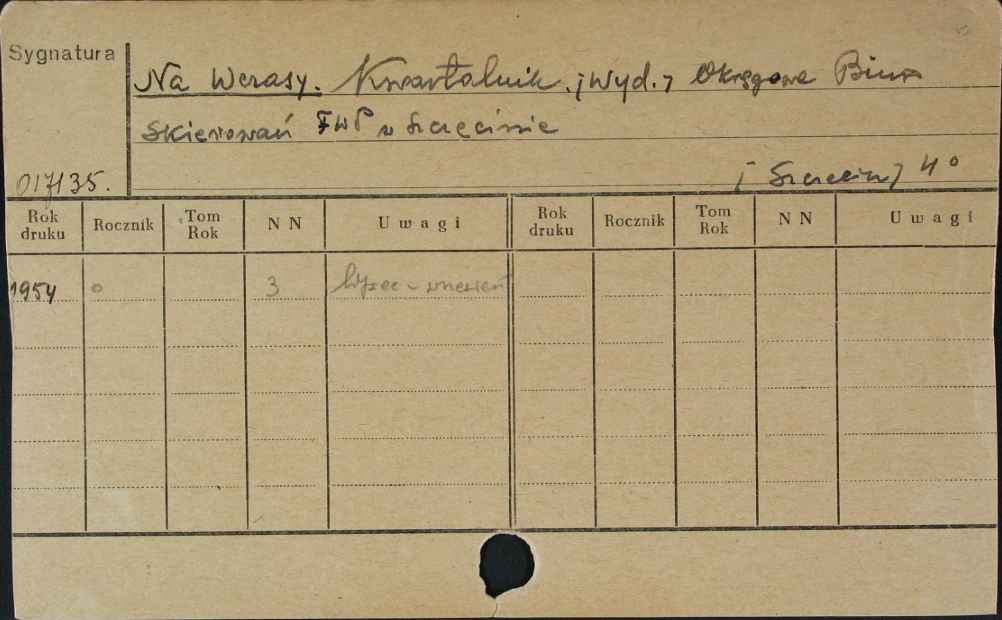 Sygnatura
Na Wczasy. Kwartalnik. [Wyd.] Okręgowe Biuro
Skierowań FWP w Szczecinie
017135.
[Szczecin] 4°
Rok druku Rocznik Tom Rok NN Uwagi Rok druku Rocznik Tom Rok NN Uwagi
1954 o 3 lipiec - wrzesień